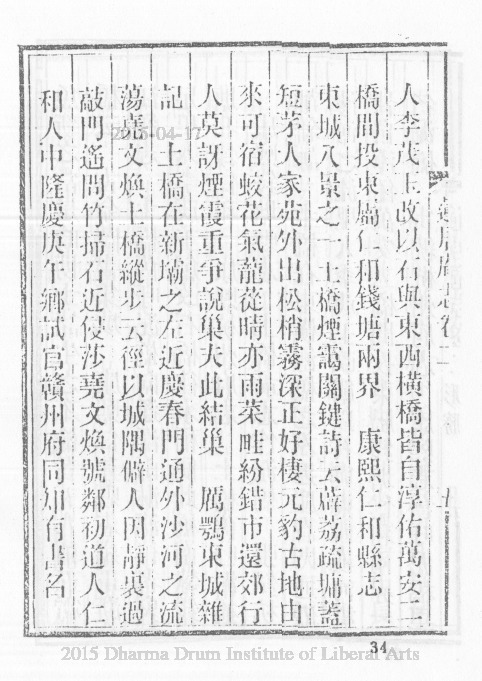 人李茂上改以石與東西橫橋皆自淳佑萬安二
橋間投東鬲仁和錢塘兩界 康熙仁和縣志
東城八景之一土橋煙靄關鍵詩云薜荔疏墉蓋
短茅人家苑外出松梢霧深正好棲元豹古地由
來可宿蛟花氣龍從晴亦雨菜畦紛錯市還郊行
人莫訝煙霞重爭說巢夫此結巢 厲鶚東城雜
記 土橋在新壩之左近慶春門通外沙河之流
蕩堯文煥土橋縱步云徑以城隅僻人因靜裏過
敲門遙問竹掃石近侵莎堯文煥號鄰初道人仁
和人中隆慶庚午鄉試官贛州府同知有書名
卷二
34
2015-04-17
2015 Dharma Drum Institute of Liberal Arts